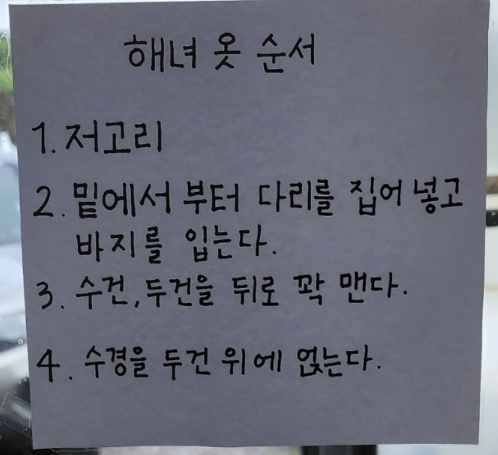 해녀 옷 순서
1. 저고리
2. 밑에서 부터 다리를 집어 넣고
바지를 입는다.
3. 수건, 두건을 뒤로 꽉 맨다.
4. 수경을 두건 위에 얹는다.